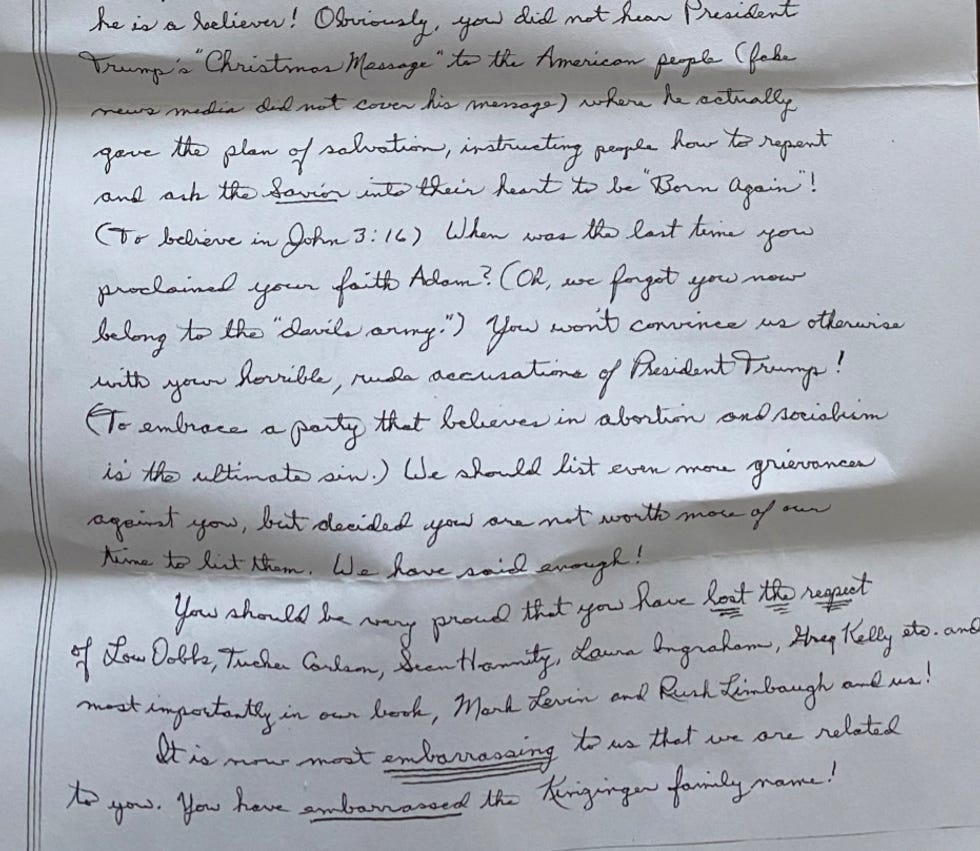 he is a believer! Obviously, you did not hear President
Trump's "Christmas Message" to the American people (fake
news media did not cover his message) where he actually
gave the plan of salvation, instructing people how to repent
and ask the Savior into their heart to be "Born Again"!
(To believe in John 3:16) When was the last time you
proclaimed your faith Adam? (Oh, we forgot you now
belong to the "devils army.") You won't convince us otherwise
with your horrible, rude accusations of President Trump!
(To embrace a party that believes in abortion and socialism
is the ultimate sin.) We should list even more grievances
against you, but decided you are not worth more of our
time to list them. We have said enough!
You should be very proud that you have lost the respect
of Lou Dobbs, Tucker Carlson, Sean Hannity, Laura Ingraham, Greg Kelly etc. and
most importantly in our book, Mark Levin and Rush Limbaugh and us!
It is now most embarrassing to us that we are related
to you. You have embarrassed the Kinzinger family name!